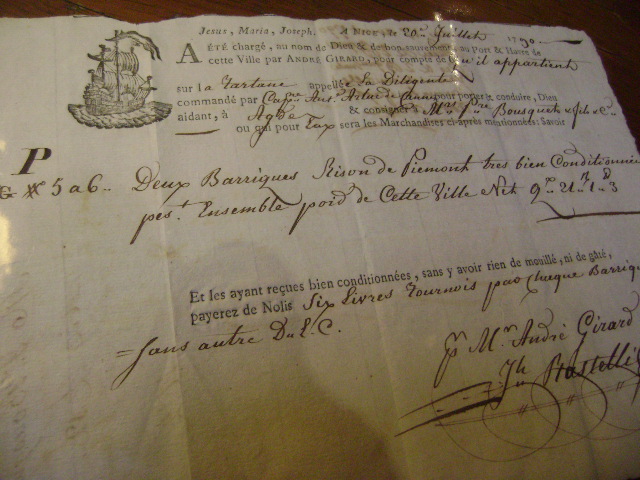 Jesus, Maria, Joseph. A Nice, le 20me Juillet 1790
A ÉTÉ chargé, au nom de Dieu & de bon sauvement, au Port & Havre de
cette Ville par ANDRÉ GIRARD, pour compte de qu'il appartient
sur la Tartane appellée La Diligente
commandé par Capne Ant. pour porter & conduire, Dieu
aidant, à Agde & consigner à Mrs Pre Bousquet & fils & Ce
ou qui pour Eux sera les Marchandises ci-après mentionnées: Savoir
P
G 5 a 6.. Deux Barriques Rison de Piemont tres bien Conditionnées
pest Ensemble poid de Cette Ville Net
Et les ayant reçues bien conditionnées, sans y avoir rien de mouillé, ni de gâté,
payerez de Nolis Six Livres Tournois pao Chaque Barrique
= sans autre D. L. C.
pr Mr André Girard
Jh Rastelli